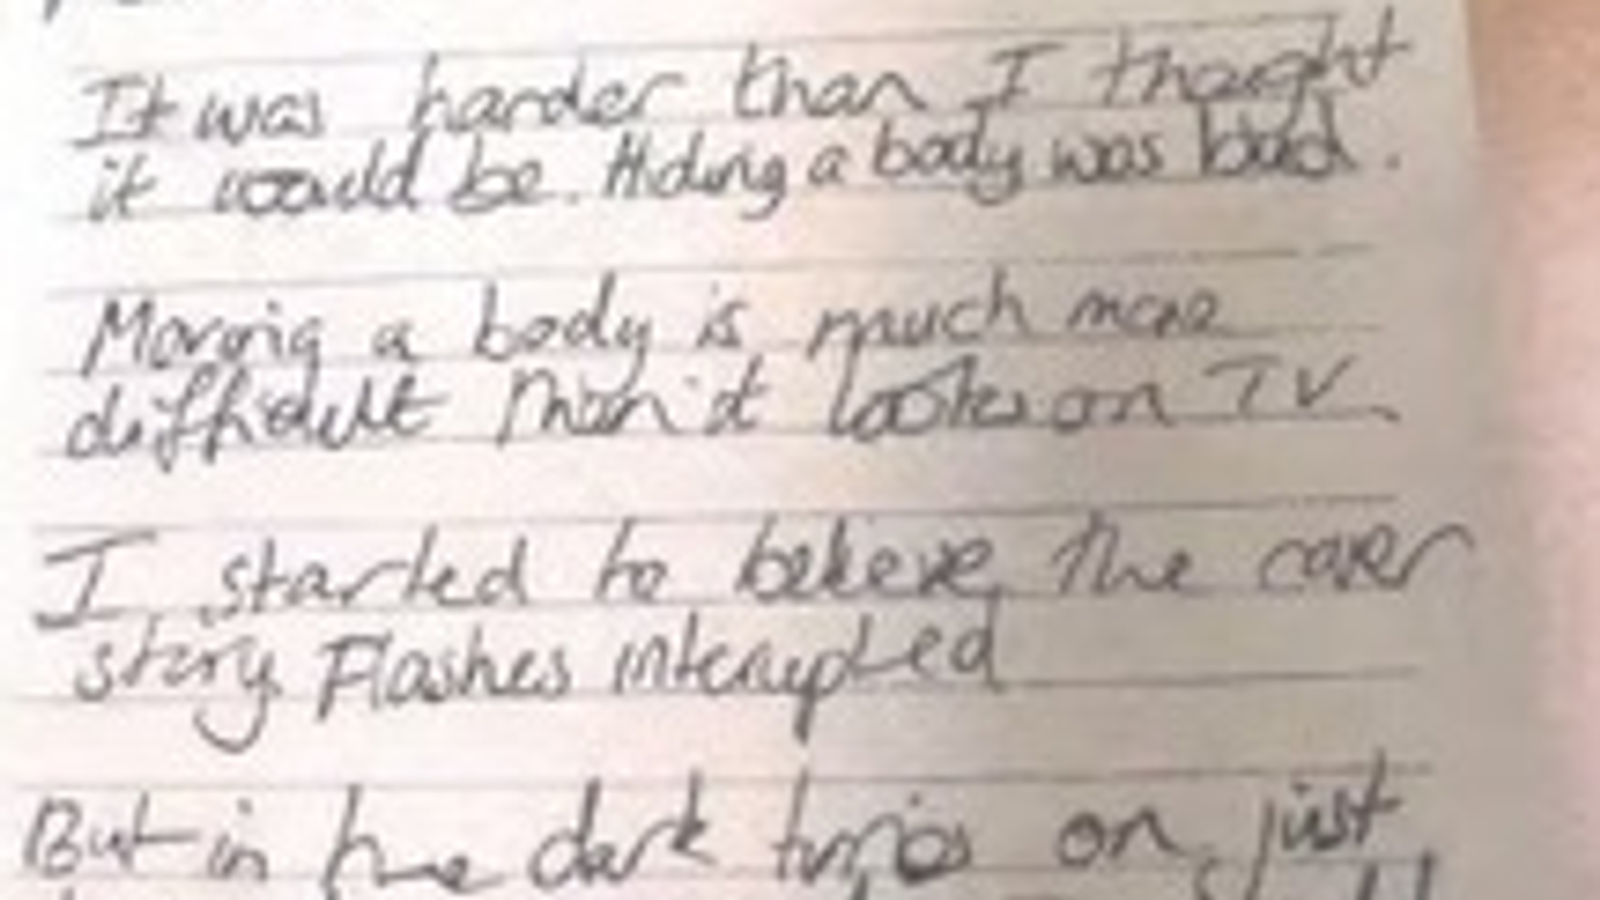 It was harder than I thought
it would be. Hiding a body was bad.
Moving a body is much more
difficult than it looks on TV.
I started to believe the cover
story. Flashes interupted
But in the dark on just